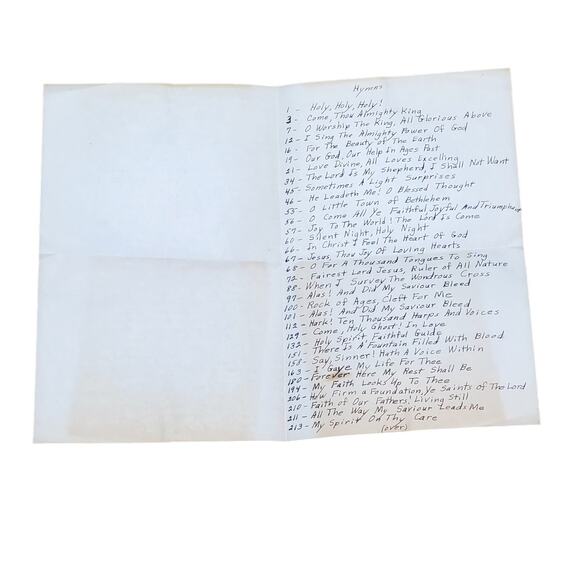 Hymns
1 - Holy, Holy, Holy!
3 - Come, Thou Almighty King
7 - O Worship The King, All Glorious Above
12 - I Sing The Almighty Power Of God
16 - For The Beauty of The Earth
19 - Our God, Our Help In Ages Past
21 - Love Divine, All Loves Excelling
34 - The Lord Is My Shepherd, I Shall Not Want
45 - Sometimes A Light Surprises
46 - He Leadeth Me! O Blessed Thought
55 - O Little Town of Bethlehem
56 - O Come All Ye Faithful Joyful And Triumphant
57 - Joy To The World! The Lord Is Come
60 - Silent Night, Holy Night
66 - In Christ I Feel The Heart Of God
67 - Jesus, Thou Joy Of Loving Hearts
68 - O For A Thousand Tongues To Sing
72 - Fairest Lord Jesus, Ruler of All Nature
88 - When I Survey The Wondrous Cross
97 - Alas! And Did My Saviour Bleed
100 - Rock of Ages, Cleft For Me
101 - Alas! And Did My Saviour Bleed
112 - Hark! Ten Thousand Harps And Voices
129 - Come, Holy Ghost! In Love
132 - Holy Spirit Faithful Guide
151 - There Is A Fountain Filled With Blood
158 - Say, Sinner! Hath A Voice Within
163 - I Gave My Life For Thee
180 - Forever Here My Rest Shall Be
194 - My Faith Looks Up To Thee
206 - How Firm a Foundation, Ye Saints of The Lord
210 - Faith of Our Fathers! Living Still
211 - All The Way My Saviour Leads Me
213 - My Spirit On Thy Care
(over)